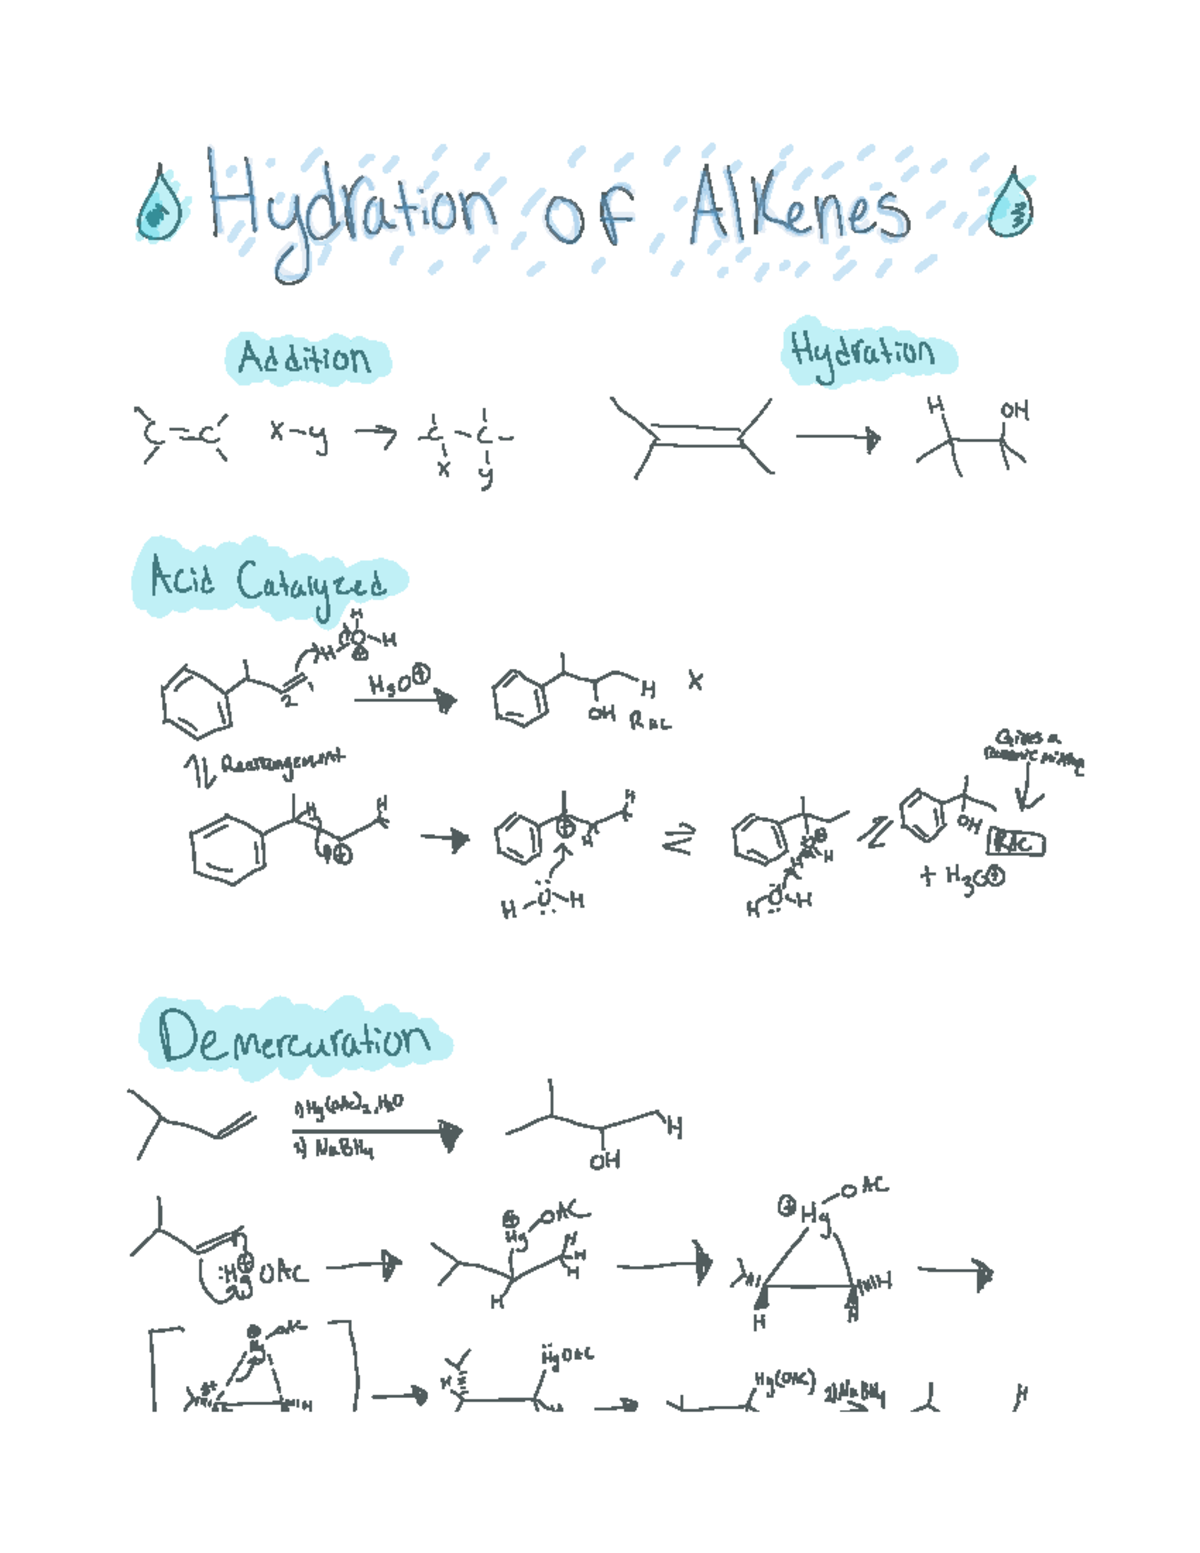 Hydration of Alkenes
Addition
Hydration
C=C X-y → C-C
X
y
H
OH
Acid Catalyzed
H
H O H
⊕
1
2
H3O⊕
H
OH Rac
X
Rearrangement
Gives a
racemic mixture
H
H
⊕
H
⊕
H
H O H
⊕
H
H
H O H
OH
Rac
+ H3O⊕
Demercuration
1) Hg(OAc)2, H2O
2) NaBH4
H
OH
⊕
:Hg OAc
⊕
Hg OAc
H
H
H
H
⊕ Hg O AC
H
H
H
⊕
Hg OAc
δ+
H
H
HgOAc
Hg(OAc)
2) NaBH4
H